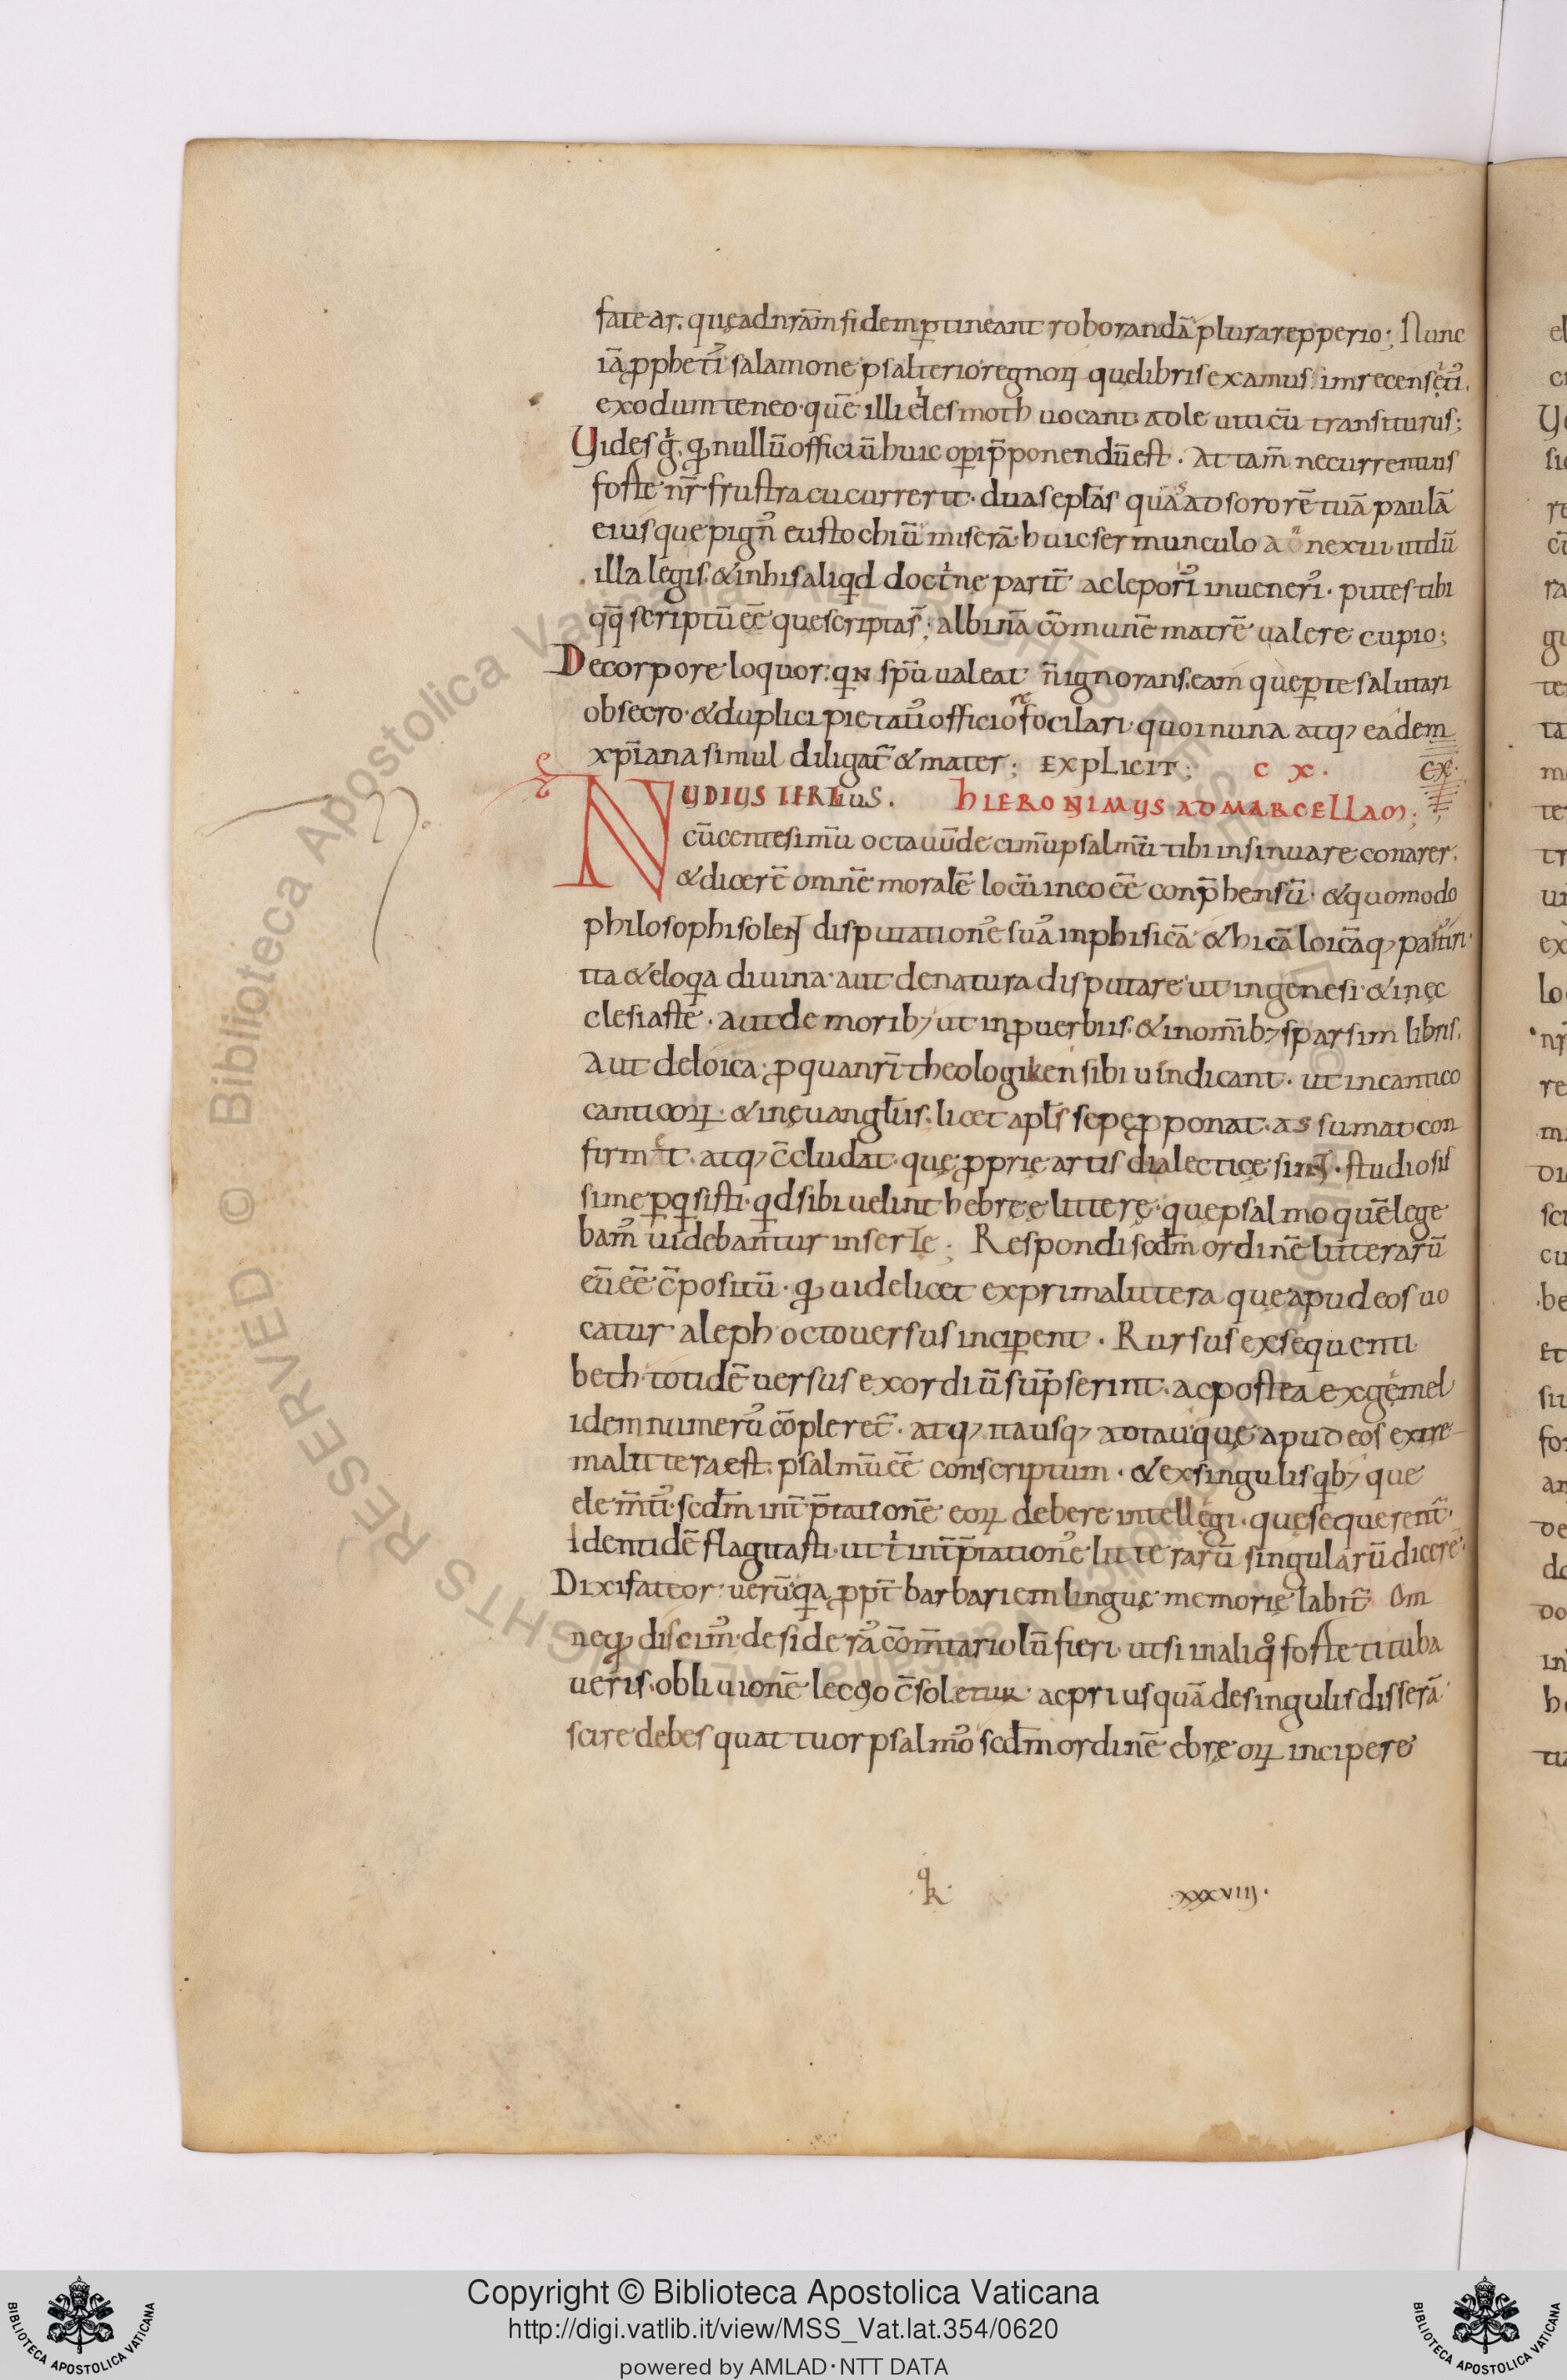 fatear. quę ad nr̄am fidem ꝑtineant roborandā plura repperio; Nunc
iā ꝓphetis̉ salamone psalterio regnoꝝ que libris examusim recensęti̓s.
exodum teneo quē illi elesmoth uocant ad leuiticū transiturus;
Vides gͥ. ꝙ nullū officiū huic oꝑi p̄ponendū est. Attam̄ necurrentius
forte nr̄ frustra cucurrerit. duas epłas quas ad sororē tuā paulā
eiusque pign̓ eustochiū miserā huic sermunculo annexui ut dū
illa legis. & in his aliqd doctͥne parit̄ ac lepori̓s inueneri̓s. putes tibi
qq̄ scriptū eē que scripta s̄; albinā cōmunē matrē ualere cupio;
De corpore loquor: qͥn spū ualeat n̄ ignorans. eam que ꝑ te salutari
obsecro. & duplici pietati̓s officio refocilari quo in una atq; eadem
xp̄iana simul diligat̄ & mater; EXPLICIT; C X. CX.
NUDIUS TERtiuS. HIERONIMUS AD MARCELLAM;
cū centesimū octauū decimū psalmū tibi insinuare conarer.
& dicerē omnē moralē locū in eo eē conp̄hensū. & quomodo
philosophi solent disputatione̓s sua̓s in phisicā & hicā loicāq; partiri
ita & eloqͣ diuina aut de natura disputare ut in genesi & in ęc
clesiaste. aut de morib; ut in ꝓuerbiis. & in omīb; sparsim libris.
Aut de loica; ꝓ qua nr̄i theologiken sibi uindicant. ut in cantico
canticoꝝ. & in ęuangłiis. licet apłs sepę ꝓponat. assumat con
firmet. atq; c̄cludat. quę ꝓprię artis dialecticę sint. studiosis
sime ꝑqͥsisti. qͥd sibi uelint hebręę litterę. que psalmo quē lege
bam̓ uidebantur insertę; Respondi scd̄m ordinē litterarū
eū eē c̄positū. ꝙ uidelicet ex prima littera quę apud eos uo
catur aleph octo uersus inciꝑent. Rursus ex sequenti
beth totidē uersus exordiū sūpserint. ac postea ex gęmel
idem numeru̓s cōpleret̄. atq; ita usq; ad tau quę apud eos extre
ma littera est. psalmū eē conscriptum. & ex singulis qͥb; que
elem̄ti̓s scd̄m int̄p̄tationē eoꝝ debere intellegi. que sequerent̄.
Identidē flagitasti. ut tͥ int̄p̄tatione̓s litterarū singularū dicerē.
Dixi fateor. uerū qͣ ꝓpt̄ barbariem linguę memorię labit̄ Om
ne ꝙ discim̓ desidera̓s cōm̄tariolū fieri. ut si in aliqͦ forte tituba
ueris. obliuionē lectio c̄soletur. ac priusquā de singulis disserā
scire debes quattuor psalmo̓s scd̄m ordinē ebręoꝝ incipere
qk
.xxxviiij.
Copyright © Biblioteca Apostolica Vaticana
http://digi.vatlib.it/view/MSS_Vat.lat.354/0620
powered by AMLAD·NTT DATA